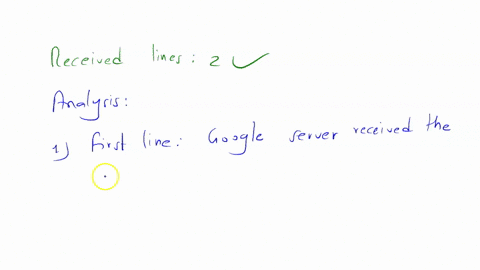 Received lines: 2 ✓
Analysis:
1) first line: Google server received the